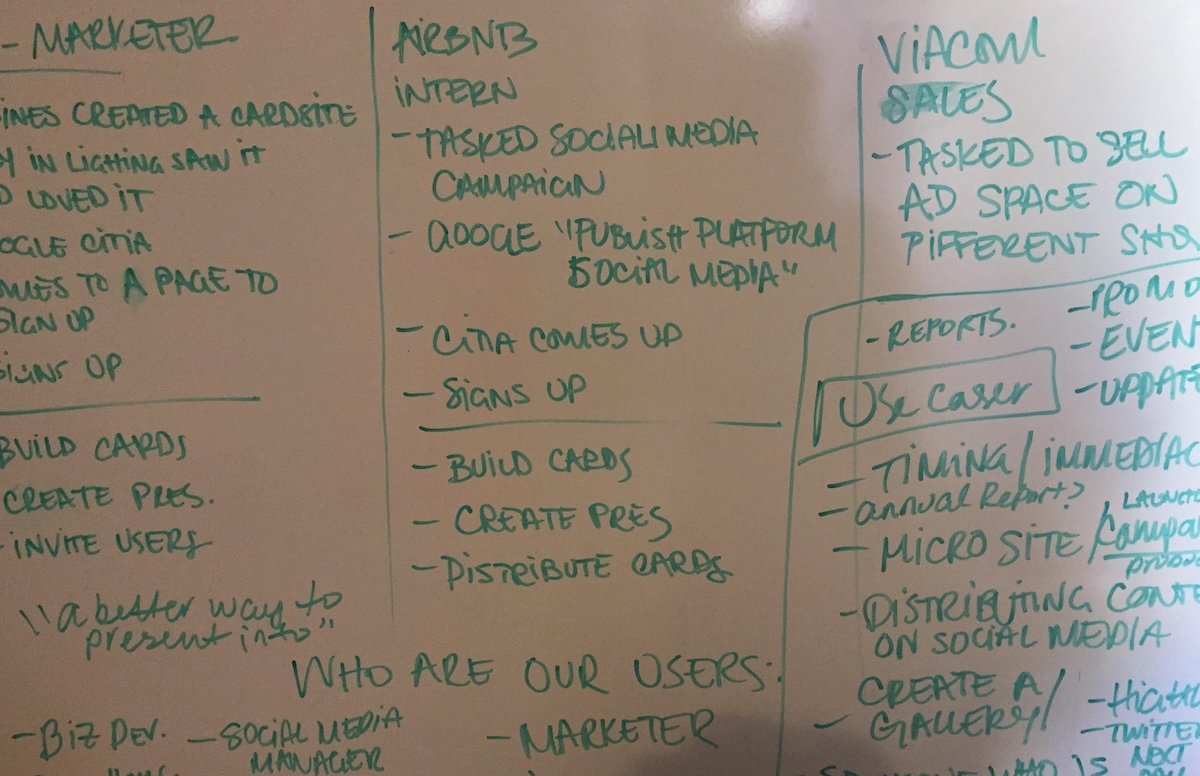 - MARKETER
INES CREATED A CARDSITE
Y IN LIGHTING SAW IT
D LOVED IT
OGLE CITIA
OMES TO A PAGE TO
SIGN UP
SIGNS UP
BUILD CARDS
CREATE PRES.
- INVITE USERS
"a better way to
present info"
AIRBNB
INTERN
- TASKED SOCIAL MEDIA
CAMPAIGN
- GOOGLE "PUBLISH PLATFORM
SOCIAL MEDIA"
- CITIA COMES UP
- SIGNS UP
- BUILD CARDS
- CREATE PRES
- DISTRIBUTE CARDS
VIACOM
SALES
- TASKED TO SELL
AD SPACE ON
DIFFERENT SHO
- REPORTS.
- PROMO
- EVEN
- UPDATE
Use Cases
- TIMING / IMMEDIAC
- annual Report?
- MICRO SITE / Campa
LAUNCH
PRODU
- DISTRIBUTING CONTE
ON SOCIAL MEDIA
- CREATE A /
GALLERY /
- HIGH
- TWITTE
NEXT
WHO ARE OUR USERS:
- BIZ DEV.
- SOCIAL MEDIA
MANAGER
- MARKETER
WHO IS